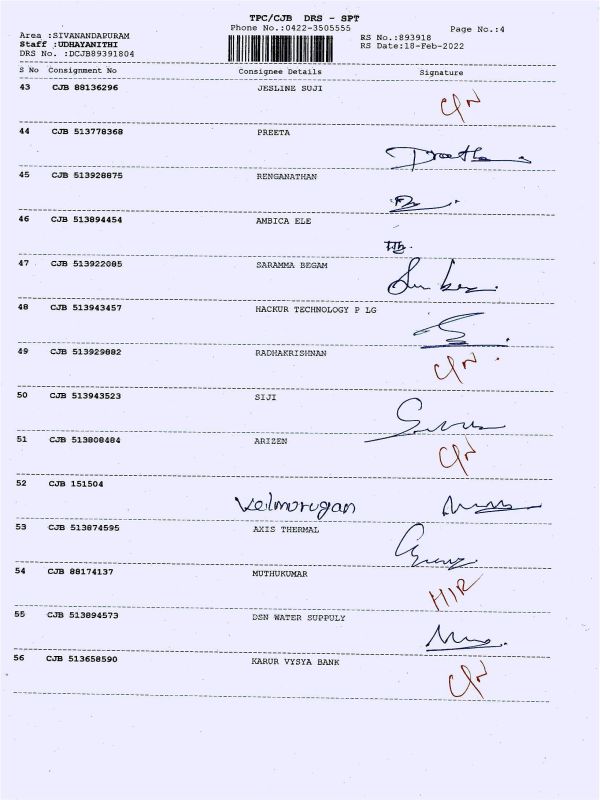 TPC/CJB DRS - SPT
Phone No.:0422-3505555
Page No.:4
Area :SIVANANDAPURAM
RS No.:893918
Staff :UDHAYANITHI
RS Date:18-Feb-2022
DRS No. :DCJB89391804
S No Consignment No Consignee Details Signature
43 CJB 88136296 JESLINE SUJI
44 CJB 513778368 PREETA
Preetha
45 CJB 513928875 RENGANATHAN
46 CJB 513894454 AMBICA ELE
47 CJB 513922085 SARAMMA BEGAM
48 CJB 513943457 HACKUR TECHNOLOGY P LG
49 CJB 513929882 RADHAKRISHNAN
50 CJB 513943523 SIJI
51 CJB 513808484 ARIZEN
52 CJB 151504
Velmorugan
53 CJB 513874595 AXIS THERMAL
54 CJB 88174137 MUTHUKUMAR
55 CJB 513894573 DSN WATER SUPPULY
56 CJB 513658590 KARUR VYSYA BANK